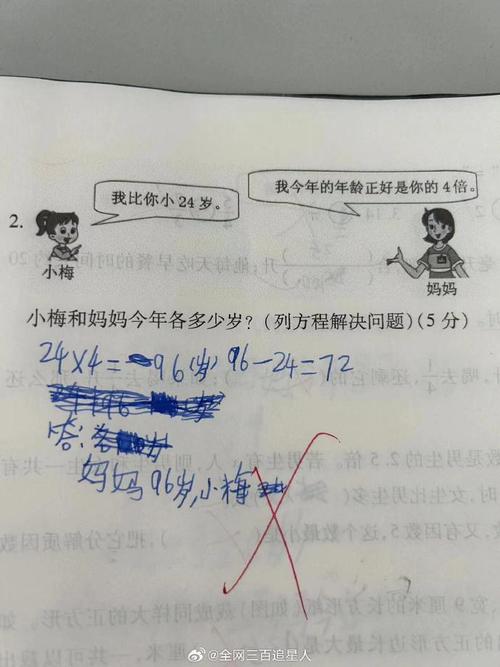 我比你小24岁。
我今年的年龄正好是你的4倍。
2.
小梅
妈妈
小梅和妈妈今年各多少岁?(列方程解决问题)(5分)
24×4=96(岁) 96-24=72
答:
妈妈96岁,小梅
@全网三百追星人